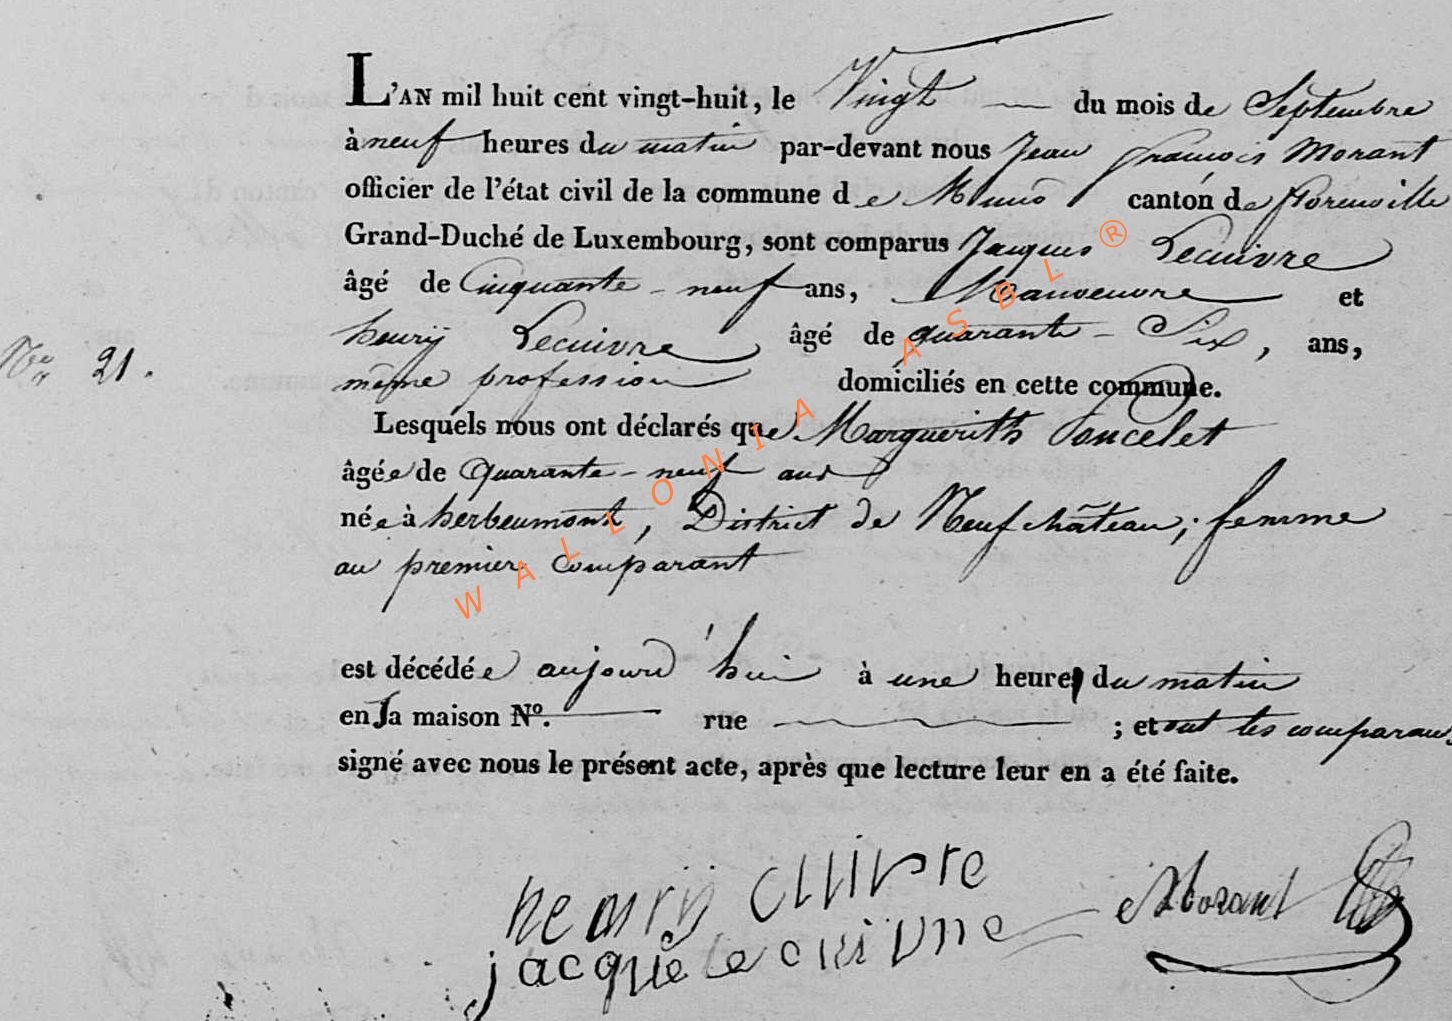 L'AN mil huit cent vingt-huit, le Vingt du mois de Septembre
à neuf heures du matin par-devant nous Jean françois Morant
officier de l'état civil de la commune de Muno canton de florenville
Grand-Duché de Luxembourg, sont comparus Jacques Lecuivre
âgé de Cinquante-neuf ans, Manoeuvre et
henrÿ Lecuivre âgé de quarante-Six, ans,
N.er 21. même profession domiciliés en cette commune.
Lesquels nous ont déclarés que Marguerith Poncelet
âgée de quarante-neuf ans
née à herbeumont, District de Neufchâteau; femme
au premier comparant
est décédée aujourd'hui à une heure du matin
en sa maison N°. rue ; et ont les comparans
signé avec nous le présent acte, après que lecture leur en a été faite.
henrÿ cuivre
jacque le cuivre
Morant
WALLONIA ASBL ®